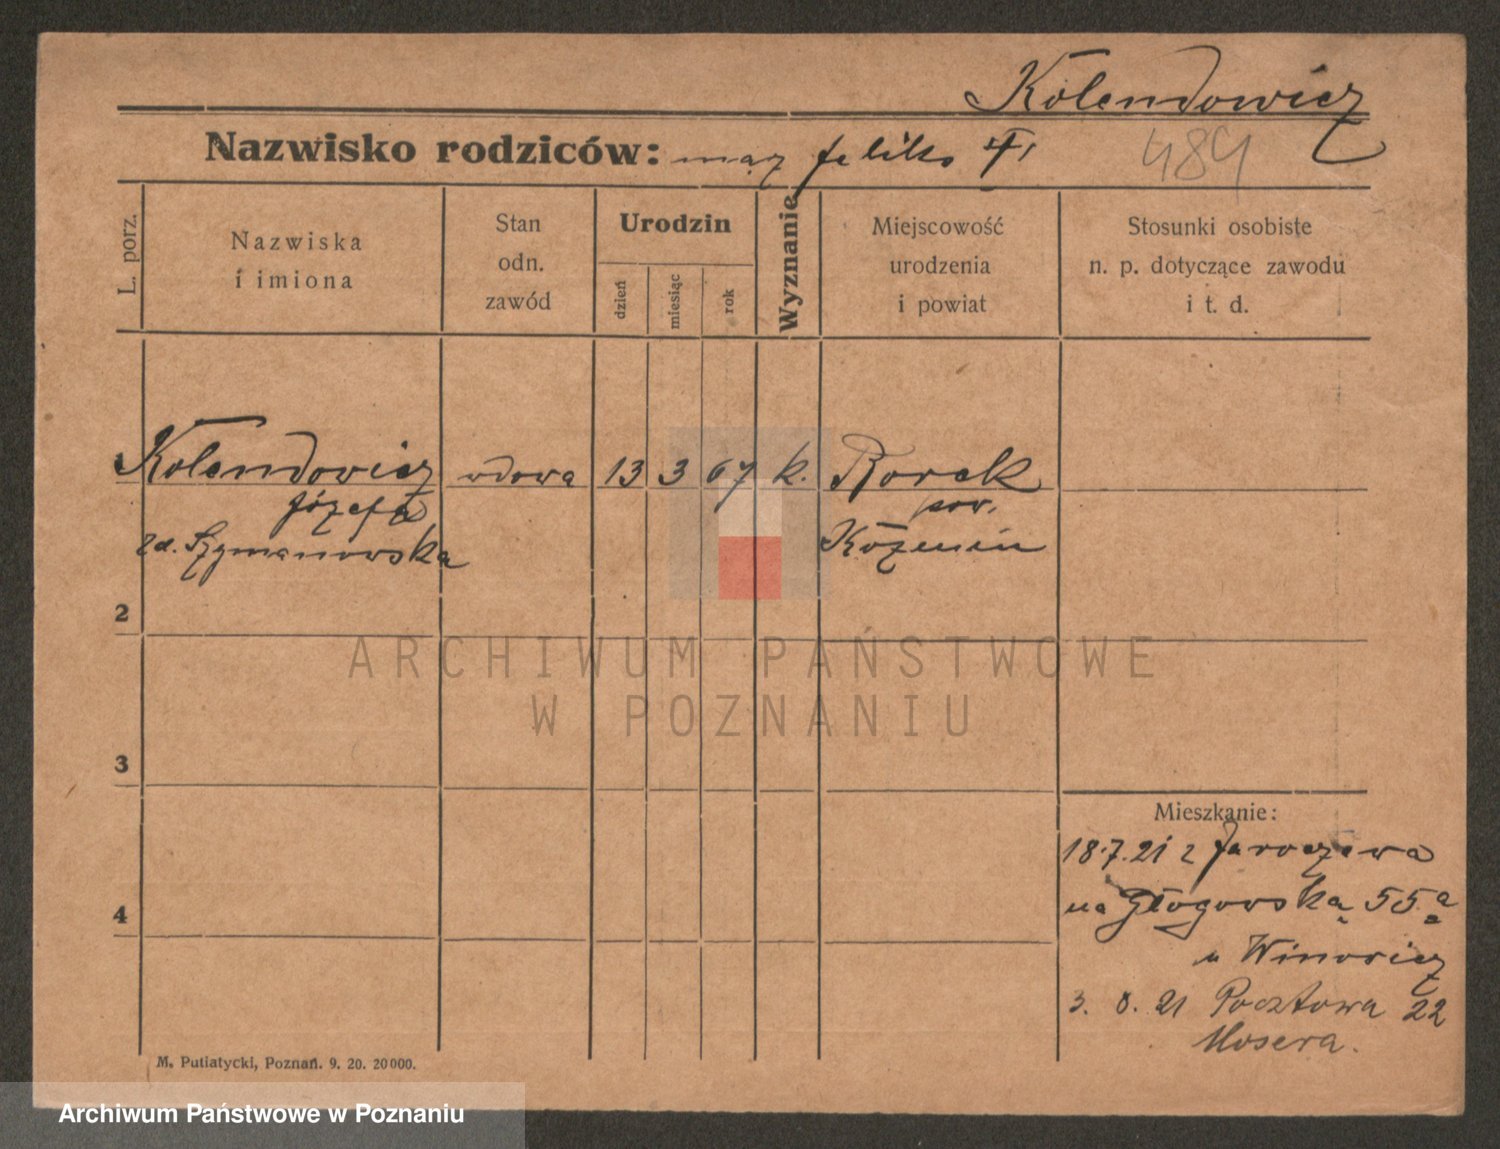 Kolendowicz
Nazwisko rodziców: mąż feliks
484
L. porz.
Nazwiska
i imiona
Stan
odn.
zawód
Urodzin
dzień
miesiąc
rok
Wyznanie
Miejscowość
urodzenia
i powiat
Stosunki osobiste
n. p. dotyczące zawodu
i t. d.
Kolendowicz wdowa 13 3 67 k. Borek
Józefa pow.
zd. Szymanowska Koźmin
2
ARCHIWUM PAŃSTWOWE
W POZNANIU
3
Mieszkanie:
18.7.21 z Jaroczewa
4
na Głogowska 55a
u
3. 8. 21 Pocztowa 22
Mosera.
M. Putiatycki, Poznań. 9. 20. 20000.
Archiwum Państwowe w Poznaniu